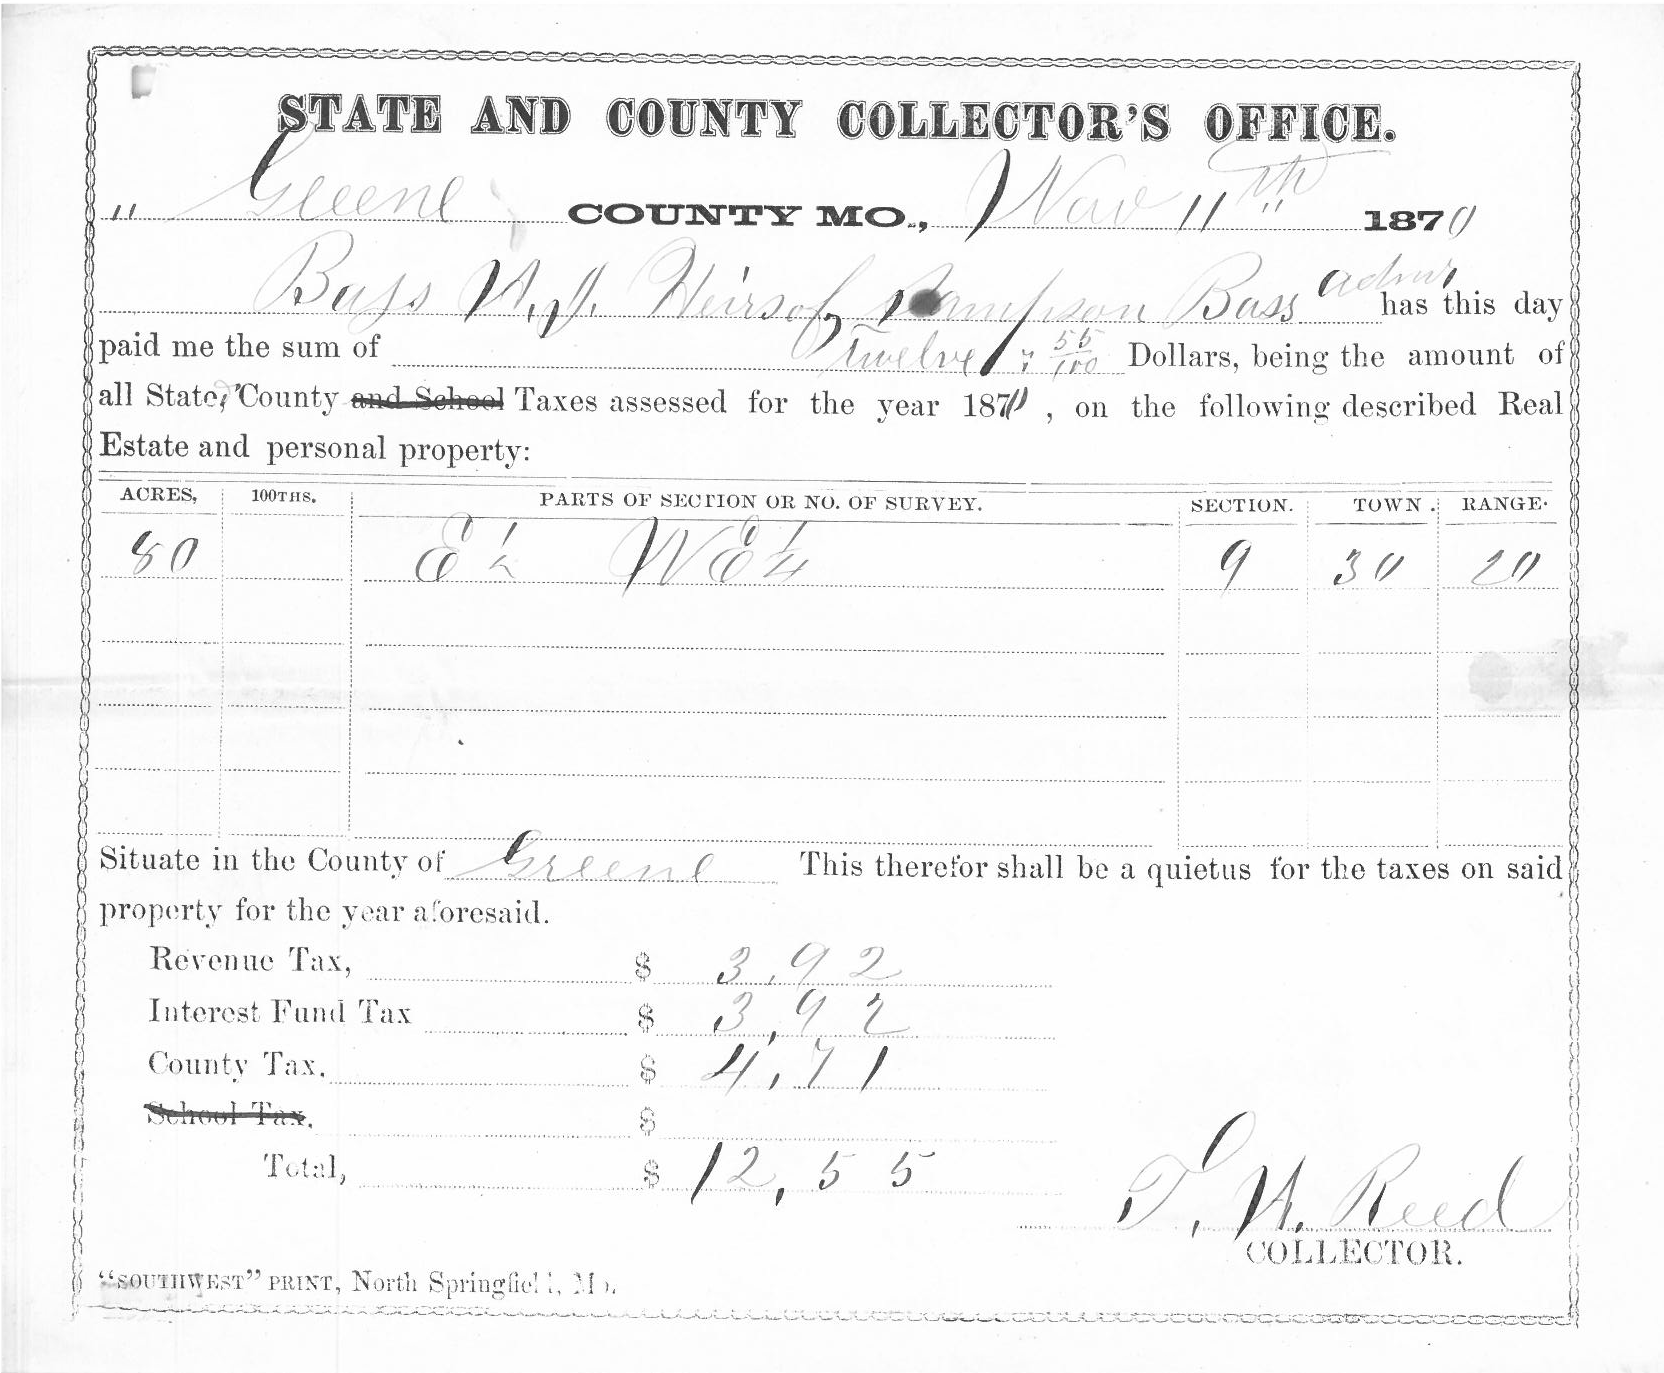 STATE AND COUNTY COLLECTOR'S OFFICE.
" Greene COUNTY MO., Nov 11th 1870
Bass A. J. Heirs of Sampson Bass admr has this day
paid me the sum of Twelve & 55/100 Dollars, being the amount of
all State, & County and School Taxes assessed for the year 1870, on the following described Real
Estate and personal property:
ACRES, 100THS. PARTS OF SECTION OR NO. OF SURVEY. SECTION. TOWN. RANGE.
80 E 1/2 NE 1/4 9 30 20
Situate in the County of Greene This therefor shall be a quietus for the taxes on said
property for the year aforesaid.
Revenue Tax, $ 3,92
Interest Fund Tax $ 3,92
County Tax. $ 4,71
School Tax. $
Total, $ 12,55
T. A. Reed
COLLECTOR.
"SOUTHWEST" PRINT, North Springfield, Mo.